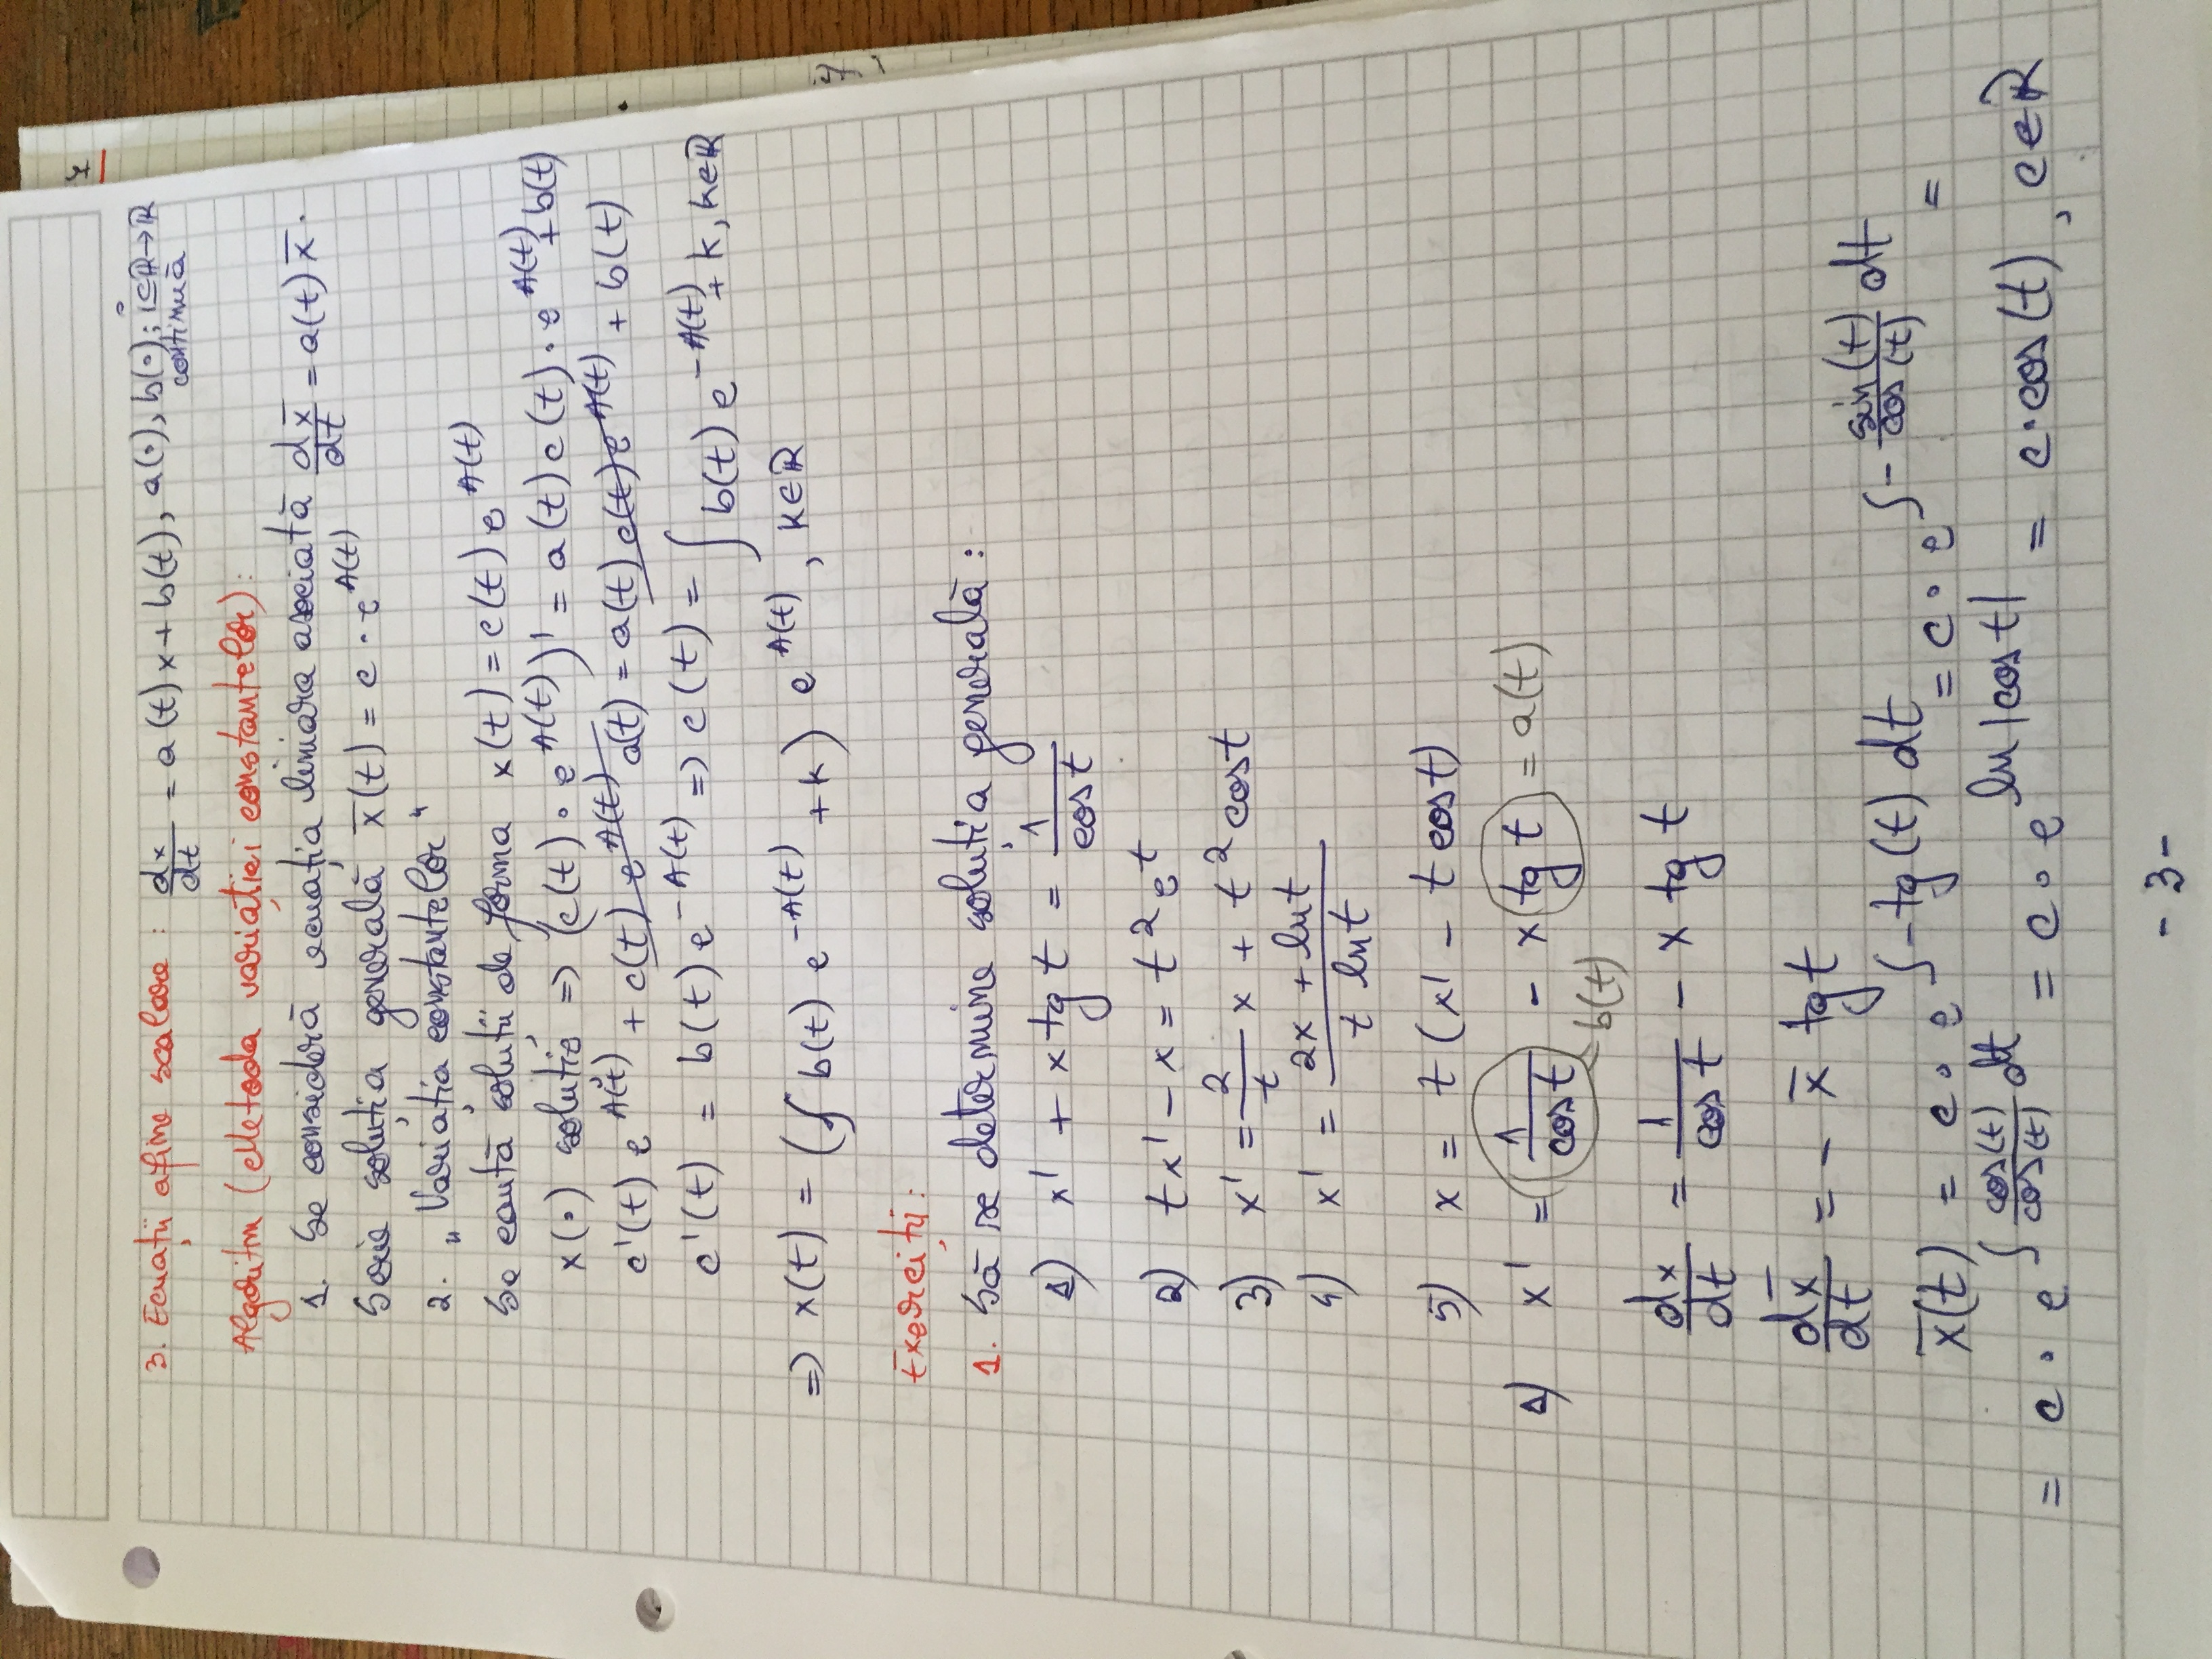 3. Ecuații afine scalare : dx/dt = a(t)x + b(t), a(·), b(·); i⊆ℝ→ℝ
continuă
Algoritm (Metoda variației constantelor):
1. Se consideră ecuația liniara asociată dx̄/dt = a(t) x̄.
Scrie soluția generală x̄(t) = c · e^A(t)
2. „Variația constantelor"
Se caută soluții de forma x(t) = c(t) e^A(t)
x(·) soluție => (c(t) · e^A(t))' = a(t) c(t) · e^A(t) + b(t)
c'(t) e^A(t) + c(t) e^A(t) a(t) = a(t) c(t) e^A(t) + b(t)
c'(t) = b(t) e^-A(t) => c(t) = ∫ b(t) e^-A(t) + k, k∈ℝ
=> x(t) = (∫ b(t) e^-A(t) + k) e^A(t), k∈ℝ
Exerciții:
1. Să se determine soluția generală :
1) x' + x tg t = 1/cos t
2) tx' - x = t² e^t
3) x' = 2/t x + t² cos t
4) x' = (2x + ln t)/(t ln t)
5) x = t (x' - t cos t)
1) x' = 1/cos t - x tg t = a(t)
b(t)
dx/dt = 1/cos t - x tg t
dx̄/dt = - x̄ tg t
x̄(t) = c · e^∫-tg(t) dt = c · e^∫-sin(t)/cos(t) dt =
= c · e^∫cos(t)/cos(t) dt = c · e^ln|cos t| = c·cos(t), c∈ℝ
- 3 -